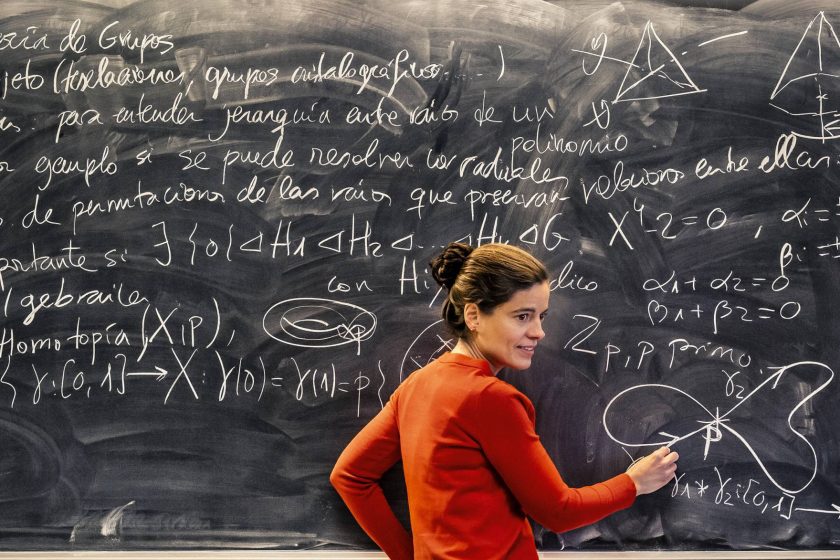 oría de Grupos
jeto (teselaciones, grupos cristalográficos.....)
para entender jerarquía entre raíces de un
polinomio
ejemplo si se puede resolver con radicales
s de permutaciones de las raíces que preservan relaciones entre ellas
portante si ∃ {0} ◁ H₁ ◁ H₂ ◁ ... ◁ Hₙ ◁ G.
X⁴-2=0, α₁=
β₁=
con
α₁+α₂=0
β₁+β₂=0
Algebraica
Homotopía (X,P),
P
Zₚ, p primo
{γ:[0,1]→X: γ(0)=γ(1)=p}
γ₂
P
γ₁*γ₂:[0,1]→